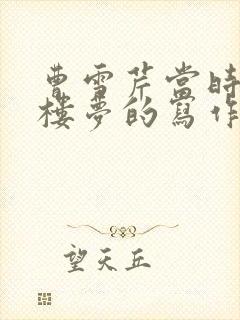 曹雪芹當時
樓夢的寫作
望天丘